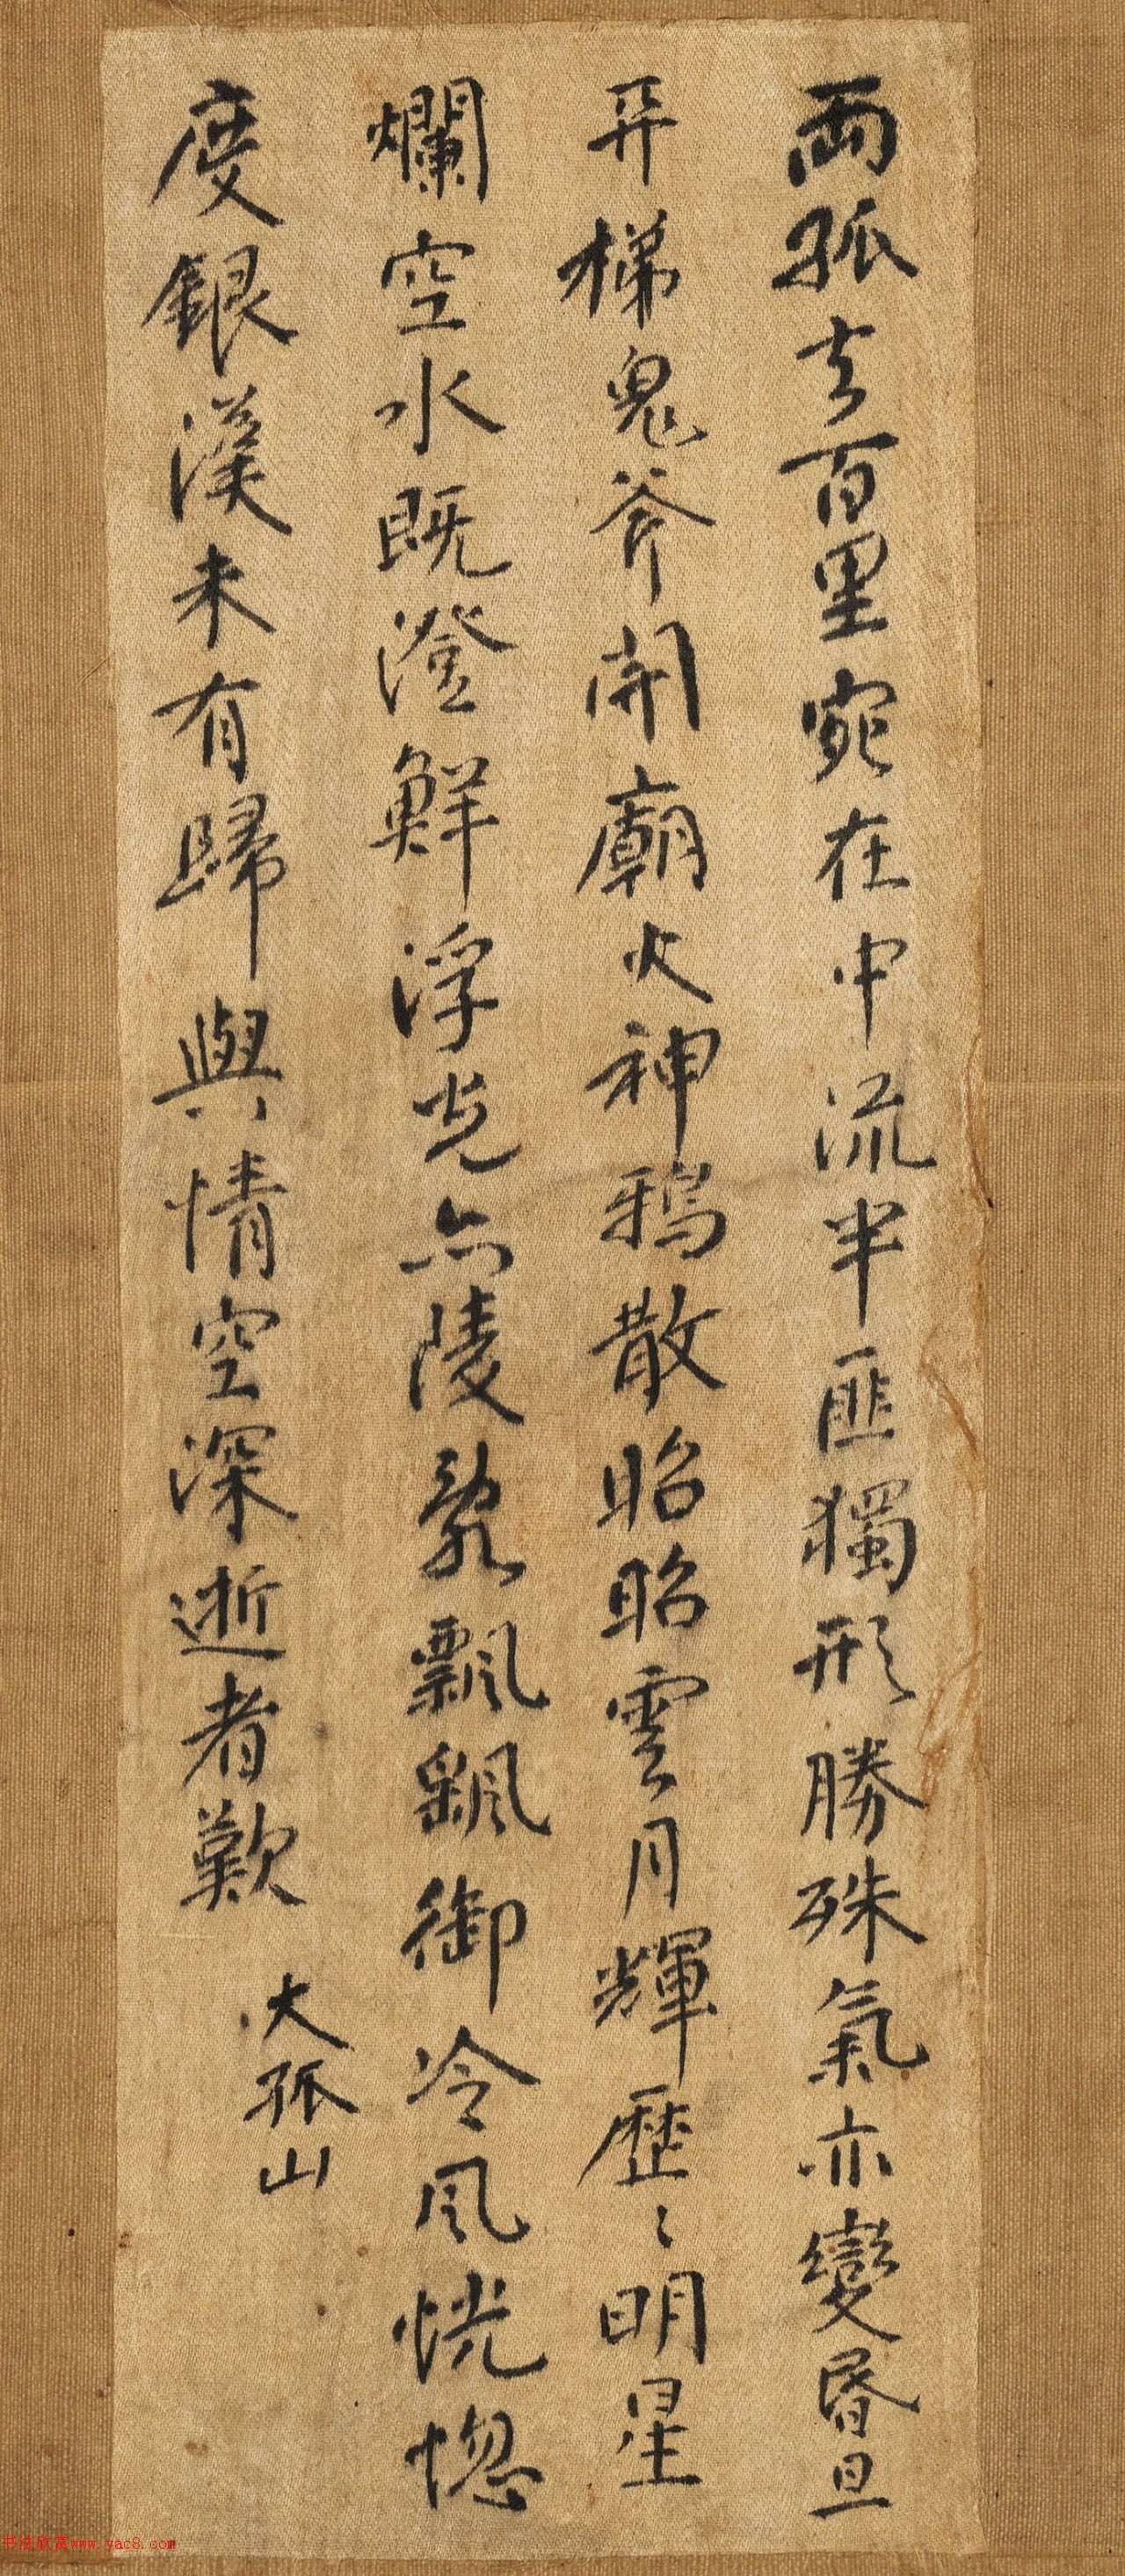 兩孤去百里宛在中流半匪獨形勝殊氣亦變昬旦
昇梯鬼斧開廟火神鴉散昭昭雲月輝歷〻明星
爛空水既澄鮮浮光亦陵亂飄飖御冷風恍惚
度銀漢未有歸與情空深逝者歎
大孤山
书法欣赏www.yac8.com